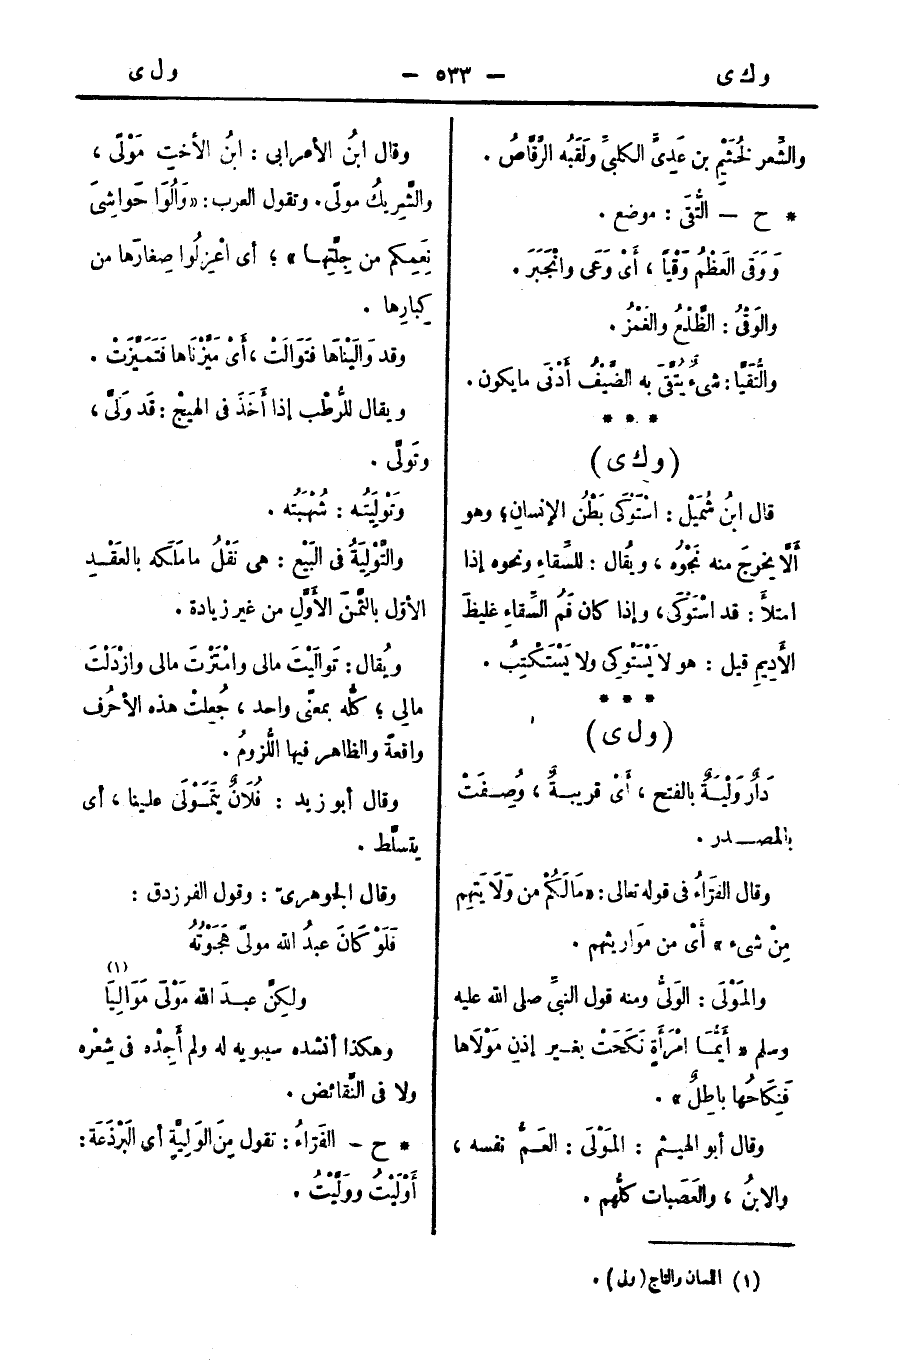 وك ى — ٥٣٣ — ول ى
والشِّعر لخُثَيْم بن عَدِىّ الكلبىّ ولَقَبُه الرَّقَّاصُ .
* ح — التُّقَى : موضع .
وَوَقَى العَظْمُ وَقْيًا ، أَىْ وَعَى وانْجَبَرَ .
والوَقْىُ : الظَّلْعُ والغَمْزُ .
والتُّقَيَّا : شىءٌ يُتَّقَى به الضَّيْفُ أَدْنَى مايكون .
* * *
( وك ى )
قال ابنُ شُمَيْل : اسْتَوْكَى بَطْنُ الإنسانِ ؛ وهو
أَلَّا يخرجَ منه نَجْوُه ، ويُقال : للسِّقاءِ ونحوه إذا
امتلأَ : قد اسْتَوْكَى ، وإذا كان فَمُ السِّقاءِ غليظَ
الأَدِيمِ قيل : هو لايَسْتَوْكِى ولا يَسْتَكْتِبُ .
* * *
( ول ى )
دَارٌ وَلْيَةٌ بالفتح ، أَىْ قريبةٌ ، وُصِفَتْ
بالمصدر .
وقال الفرّاءُ فى قوله تعالى : « مَالَكُمْ من وَلَايَتِهِم
مِنْ شىء » أَىْ من مَوَارِيثهم .
والمَوْلَى : الوَلىُّ ومنه قول النبىِّ صلى الله عليه
وسلم « أَيُّمَا امْرَأَةٍ نَكَحَتْ بغير إذنِ مَوْلَاها
فَنِكَاحُها باطِلٌ » .
وقال أبو الهيثم : المَوْلَى : العَمُّ نفسه ،
والابنُ ، والعَصَبات كلُّهم .
وقال ابنُ الأعرابى : ابنُ الأختِ مَوْلًى ،
والشَّرِيكُ مولًى . وتقول العرب : « وَالُوَا حَواشِىَ
نَعَمِكم من جِلَّتِها » ؛ أى اعْزِلُوا صِغارَها من
كِبارِها .
وقد وَالَيْنَاها فتَوَالَتْ ، أَىْ مَيَّزْنَاها فَتَمَيَّزَتْ .
ويقال للرُّطْب إذا أَخَذَ فى الهيْج : قَد وَلَّى ،
وتَولَّى .
وَتَوْلِيَتُه : شُهْبَتُه .
والتَّوْلِيَةُ فى البَيْع : هى نَقْلُ ماملَكه بالعَقْد
الأول بالثَّمَن الأَوَّل من غير زيادة .
ويُقال : تَوالَيْتَ مالى وامْتَزْتَ مالى وازْدَلْتَ
مالى ؛ كلُّه بمعنًى واحد ، جُعِلتْ هذه الأحرُف
واقعةً والظاهر فيها اللُّزومُ .
وقال أبو زيد : فُلَانٌ يَتَمَوْلَى علينا ، أى
يتسلَّط .
وقال الجوهرىّ : وقول الفرزدق :
فَلَوْ كَانَ عبدُ الله مولًى هَجَوْتُهُ
ولكِنَّ عبدَ الله مَوْلَى مَوَالِيَا (١)
وهكذا أنشده سيبويه له ولم أَجِدْه فى شِعْره
ولا فى النَّقائض .
* ح — الفَرّاءُ : تقول مِنَ الوَلِيَّةِ أى البَرْذَعَة :
أَوْلَيْتُ ووَلَّيْتُ .
(١) اللسان والتاج ( ولى ) .